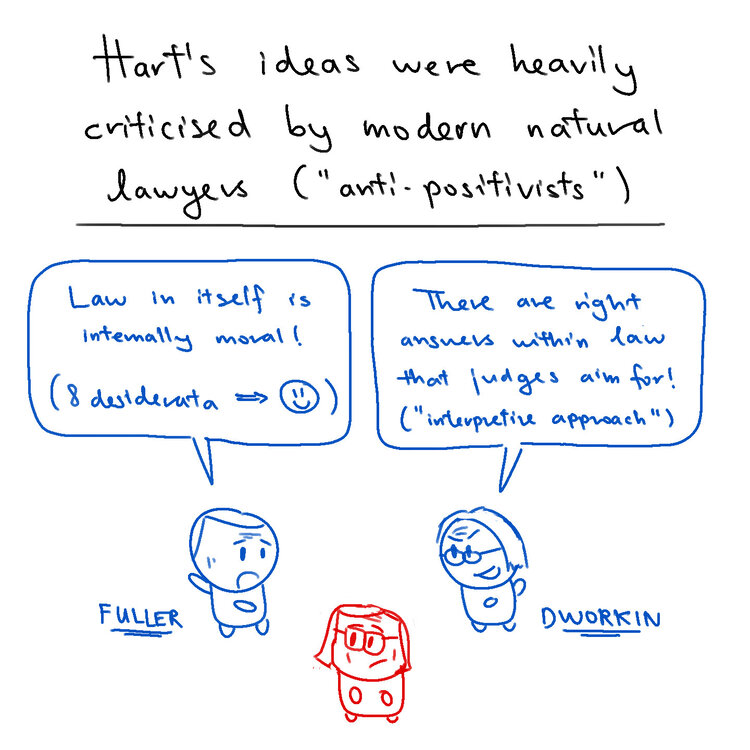 Hart's ideas were heavily
criticised by modern natural
lawyers ("anti-positivists")
Law in itself is
internally moral!
(8 desiderata ⇒ )
There are right
answers within law
that judges aim for!
("interpretive approach")
FULLER
DWORKIN